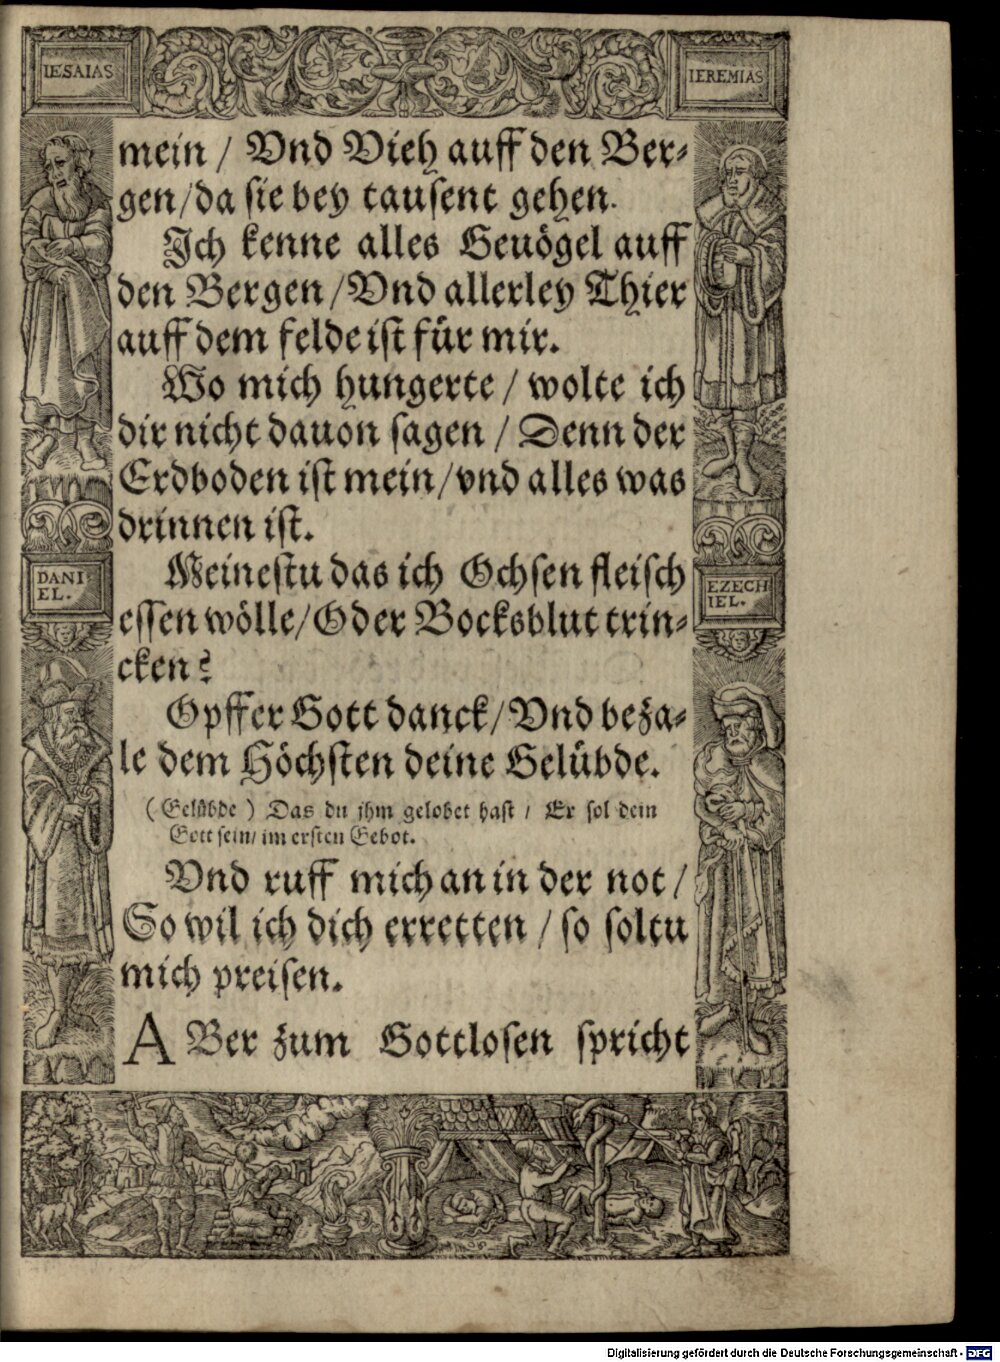 IESAIAS
IEREMIAS
mein / Vnd Vieh auff den Ber⸗
gen/da sie bey tausent gehen.
Ich kenne alles Geuögel auff
den Bergen/Vnd allerley Thier
auff dem felde ist für mir.
Wo mich hungerte / wolte ich
dir nicht dauon sagen / Denn der
Erdboden ist mein/vnd alles was
drinnen ist.
Meinestu das ich Ochsen fleisch
essen wölle/Oder Bocksblut trin⸗
cken?
Opffer Gott danck/Vnd beza⸗
le dem Höchsten deine Gelübde.
(Gelübde) Das du jhm gelobet hast / Er sol dein
Gott sein/im ersten Gebot.
Vnd ruff mich an in der not /
So wil ich dich erretten / so soltu
mich preisen.
ABer zum Gottlosen spricht
DANI
EL.
EZECH
IEL.
Digitalisierung gefördert durch die Deutsche Forschungsgemeinschaft - DFG